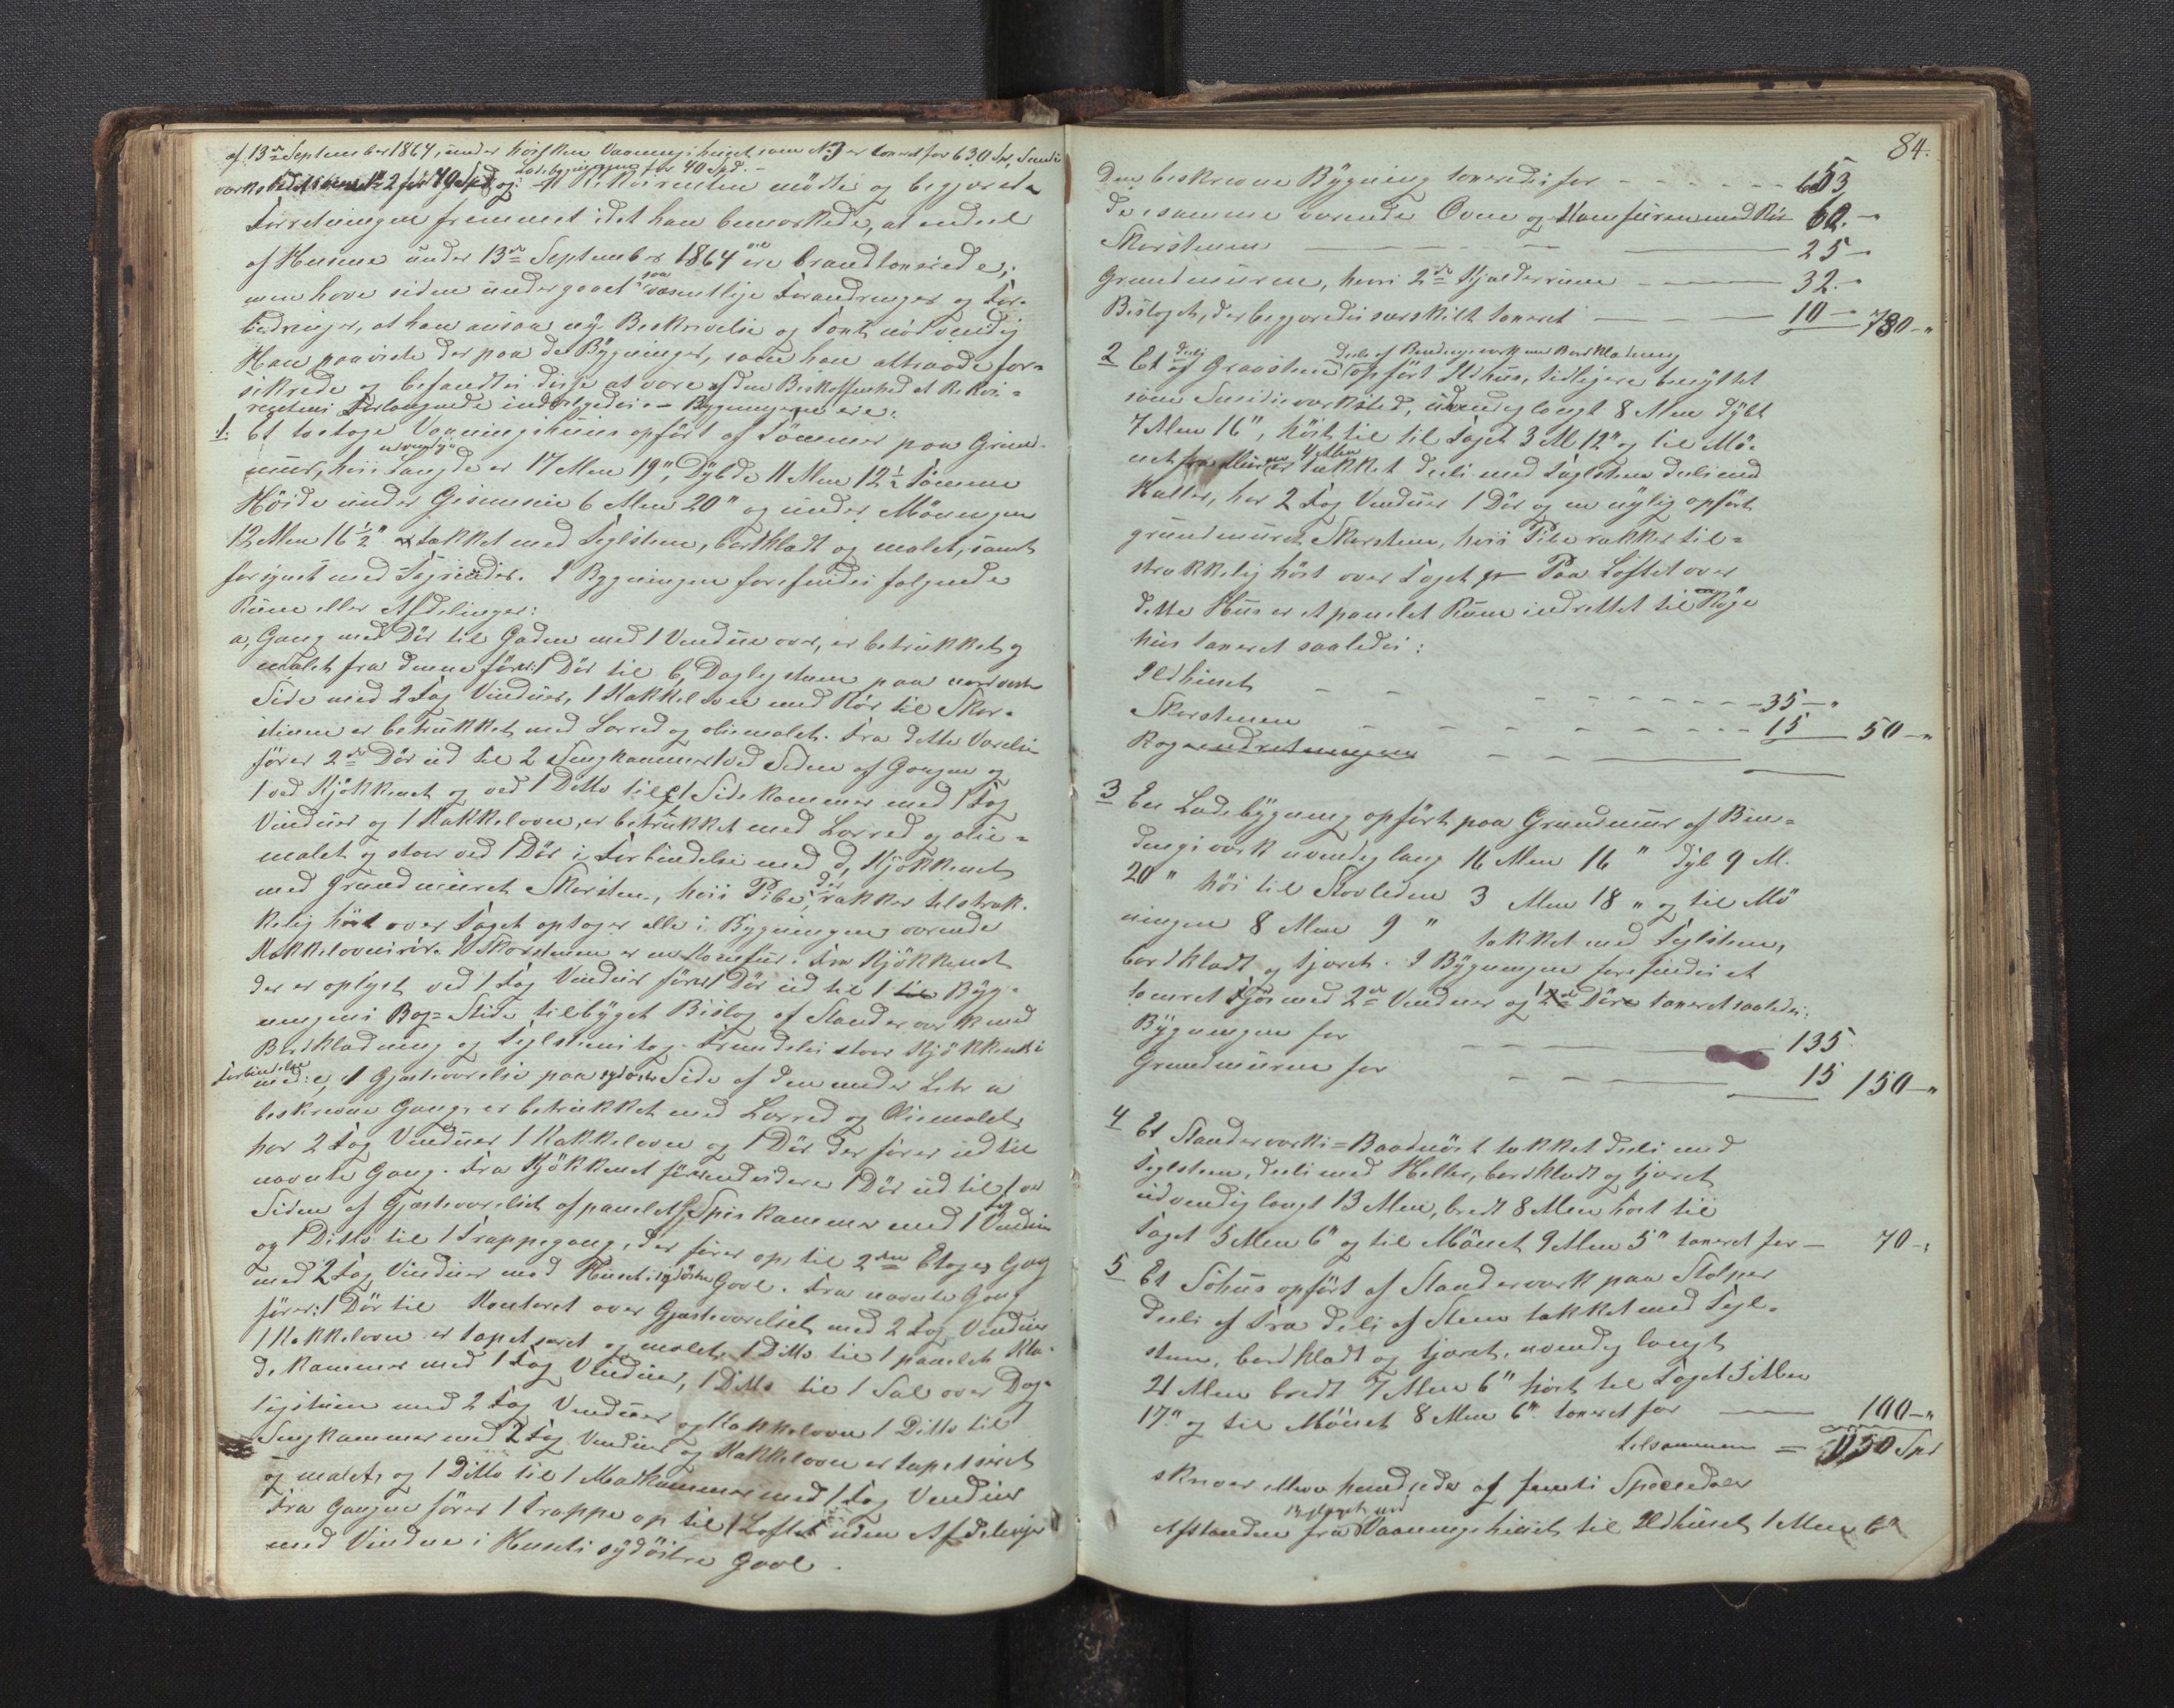 af 13de September 1864, under hvilken Vaaningshuset som No 3 er taxeret for 630 Spd, Smidie
Ladebygningen for 40 Spd. –
værkstedet som No 2 for 70 Spd og Rekvirenten mødte og begjærede
Forretningen fremmet idet han bemærkede, at endeel
af Husene under 13de September 1864 ere brandtaxerede;
men have siden undergaaet saa væsentlige Forandringer og For-
bedringer, at han ansaa ny Beskrivelse og Taxt nødvendig
Han paaviste der paa de Bygninger, som han attraaede for-
sikrede og befandtes disse at være af den Beskaffenhed at Rekvi-
rentens Forlangende indvilgedes. – Bygningerne ere:
1. Et to etages Vaaningshuus opført af Tømmer paa Grund-
udvendige
muur, hvis Længde er 17 Alen 19", Dybde 11 Alen 12½ Tomme
Høide under Gesimsen 6 Alen 20" og under Møningen
12 Alen 16½" takket med Teglsteen, bordklædt og malet, samt
forsynet med Tagrender. I Bygningen forefindes følgende
Rum eller Afdelinger:
a, Gang med Dør til Gaden med 1 Vindue over, er betrukket og
malet fra denne fører: 1 Dør til b, Daglig stuen paa nordvestre
Side med 2 Fag Vinduer, 1 Kakkelovn med Rør til Skor-
stenen er betrukket med Lærred og oliemalet. Fra dette Værelse
fører 2de Dør ud til 2 Sengkammer 1 ved Siden af Gangen og
1 ved Kjøkkenet og ved 1 Ditto til c, 1 Sidekammer med 1 Fag
Vinduer og 1 Kakkelovn, er betrukket med Lærred og olie-
malet og staar ved 1 Dør i Forbindelse med d, Kjøkkenet
med grundmuret Skorsten, hvis Pibe, der rækker tilstræk-
kelig høit over Taget optager alle i Bygningen værende
Kakkelovnsrør. I Skorstenen er en Komfur. Fra Kjøkkenet
der er oplyst ved 1 Fag Vinduer fører 1 Dør ud til 1 til Byg-
ningens Bag-Side tilbygget Bislag af Standerværk med
Bordklædning og Teglsteens tag. Fremdeles staar Kjøkkenet i
Forbindelse
med: e, 1 Gjæsteværelse paa sydøstre Side af den under Litr a
beskrevne Gang, er betrukket med Lærred og Oliemalet,
har 2 Fag Vinduer 1 Kakkelovn og 1 Dør der fører ud til
nævnte Gang. Fra Kjøkkenet fører endvidere 1 Dør ud til 1 ved
Siden af Gjæsteværelset afpanelet Spiskammer med 1 Fag Vinduer
og 1 Ditto til 1 Trappegang, der fører op til 2den Etages Gang
med 2 Fag Vinduer mod Husets sydøstre Gavl. Fra nævnte Gang
fører: 1 Dør til Kontoret over Gjæsteværelset med 2 Fag Vinduer
1 Kakkelovn er tapetseret og malet, 1 Ditto til 1 panelet Klæ-
de kammer med 1 Fag Vinduer, 1 Ditto til 1 Sal over Dag-
ligstuen med 2 Fag Vinduer og Kakkelovn 1 Ditto til
Sengkammer med 2 Fag Vinduer og Kakkelovn er tapetseret
og malet, og 1 Ditto til 1 Madkammer med 1 Fag Vinduer
Fra Gangen fører 1 Trappe op til 1 Loftet uden Afdelinger
med Vindue i Husets sydøstre Gavl.
84.
Den beskrevne Bygning taxeredes for – – – 653
De i samme værende Ovne og Komfuren med Rør 60. –
Skorstenen – – – 25 –
Grundmuren, hvori 2de Kjælderrum – – – 32. –
Bislaget, der begjæredes særskilt taxeret – – – 10 – 780 – "
deels af Bindingsværk med Bordklædning
2 Et deels af Graasteen opført Ildhuus, tidligere benyttet
som Smidieværksted, udvendig langt 8 Alen dybt
7 Alen 16", høit til til Taget 3 Al 12" og til Mø-
net 4 Alen takket deels med Teglsteen deels med
Heller, har 2 Fag Vinduer 1 Dør og en nylig opført
grundmuret Skorsteen, hvis Pibe rækker til-
strækkelig høit over Taget. – Paa Loftet over
dette Huus er et panelet Rum indrettet til Røge
huus taxeret saaledes:
Ildhuset – – – 35 – "
Skorstenen – – – 15 50 – "
Røgeindretningen – – –
3 En Ladebygning opført paa Grundmuur af Bin-
dingsværk uvendig lang 16 Alen 16 " dyb 9 Al.
20 " høi til Stavleden 3 Alen 18 " og til Mø
ningen 8 Alen 9 " takket med Teglsteen,
bordklædt og tjæret. I Bygningen forefindes et
tømret Fjøs med 2de Vinduer og 1 Dør taxeret saaledes:
Bygningen for – – – 135.
Grundmuren for – – – 15 150 – "
4 Et Standerværks-Baadnøst takket deels med
Teglsteen, deels med Heller, bordklædt og tjæret
udvendig langt 13 Alen, bredt 8 Alen høit til
Taget 5 Alen 6" og til Mønet 9 Alen 5" taxeret for – 70 – "
5 Et Søhuus opført af Standerværk paa Stolper
deels af Træ deels af Steen takket med Tegl-
steen, bordklædt og tjæret, uvendig langt
21 Alen bredt 7 Alen 6" høit til Taget 5 Alen
17" og til Mønet 8 Alen 6". taxeret for – 100 – "
tilsammen = 1150 Spd
skriver Elleve hundrede og femti Speciedaler
Bislaget ved
Afstanden fra Vaaningshuset til Ildhuset 1 Alen 6"